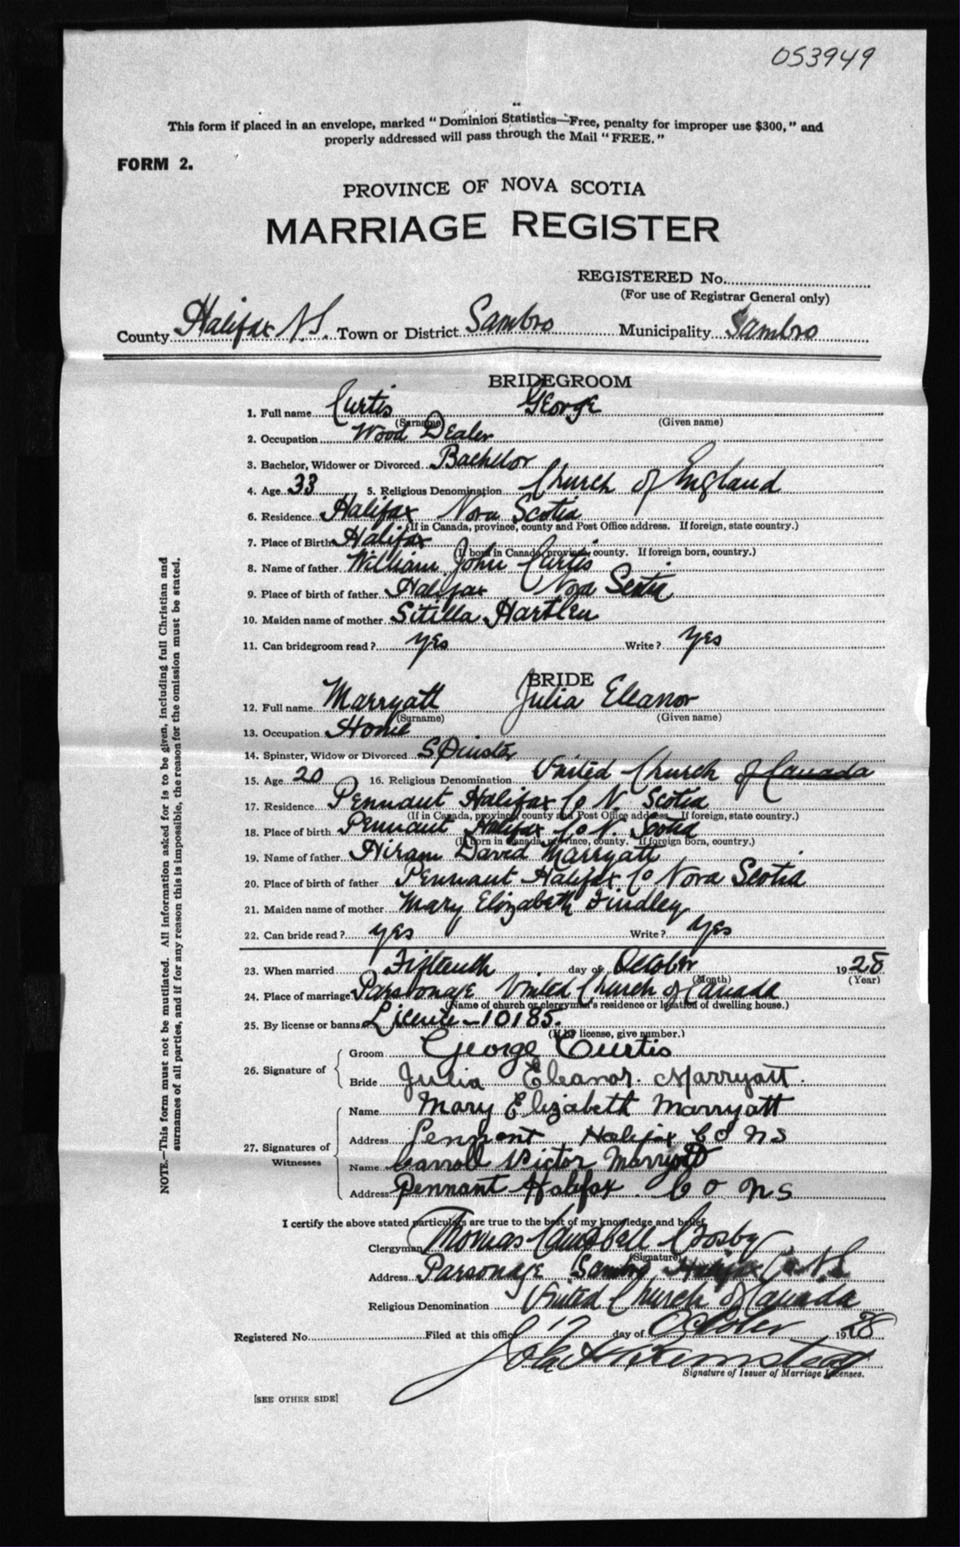 053949
This form if placed in an envelope, marked "Dominion Statistics—Free, penalty for improper use $300," and
properly addressed will pass through the Mail "FREE."
FORM 2.
PROVINCE OF NOVA SCOTIA
MARRIAGE REGISTER
REGISTERED No.
(For use of Registrar General only)
County Halifax N.S. Town or District Sambro Municipality Sambro
BRIDEGROOM
1. Full name Curtis George
(Surname) (Given name)
2. Occupation Wood Dealer
3. Bachelor, Widower or Divorced Bachelor
4. Age 33 5. Religious Denomination Church of England
6. Residence Halifax Nova Scotia
(If in Canada, province, county and Post Office address. If foreign, state country.)
7. Place of Birth Halifax
(If born in Canada, province, county. If foreign born, country.)
8. Name of father William John Curtis
9. Place of birth of father Halifax Nova Scotia
10. Maiden name of mother Sitilla Hartlen
11. Can bridegroom read? yes Write? yes
BRIDE
12. Full name Marryatt Julia Eleanor
(Surname) (Given name)
13. Occupation Home
14. Spinster, Widow or Divorced Spinster
15. Age 20 16. Religious Denomination United Church of Canada
17. Residence Pennant Halifax Co N. Scotia
(If in Canada, province, county and Post Office address. If foreign, state country.)
18. Place of birth Pennant Halifax Co N. Scotia
(If born in Canada, province, county. If foreign born, country.)
19. Name of father Hiram David Marryatt
20. Place of birth of father Pennant Halifax Co Nova Scotia
21. Maiden name of mother Mary Elizabeth Findley
22. Can bride read? yes Write? yes
23. When married Fifteenth day of October 1928
(Month) (Year)
24. Place of marriage Parsonage United Church of Canada
(Name of church or clergyman's residence or location of dwelling house.)
25. By license or banns Licence - 10185.
(If by license, give number.)
26. Signature of
Groom George Curtis
Bride Julia Eleanor. Marryatt.
27. Signatures of Witnesses
Name Mary Elizabeth Marryatt
Address Pennent Halifax Co NS
Name Carroll Victor Marryatt
Address Pennant Halifax. Co NS
I certify the above stated particulars are true to the best of my knowledge and belief,
Clergyman Thomas Campbell Crosby
(Signature)
Address Parsonage Sambro Halifax Co N.S.
Religious Denomination United Church of Canada
Registered No. Filed at this office 17 day of October 1928
Signature of Issuer of Marriage Licenses.
[SEE OTHER SIDE]
NOTE.—This form must not be mutilated. All information asked for is to be given, including full Christian and
surnames of all parties, and if for any reason this is impossible, the reason for the omission must be stated.